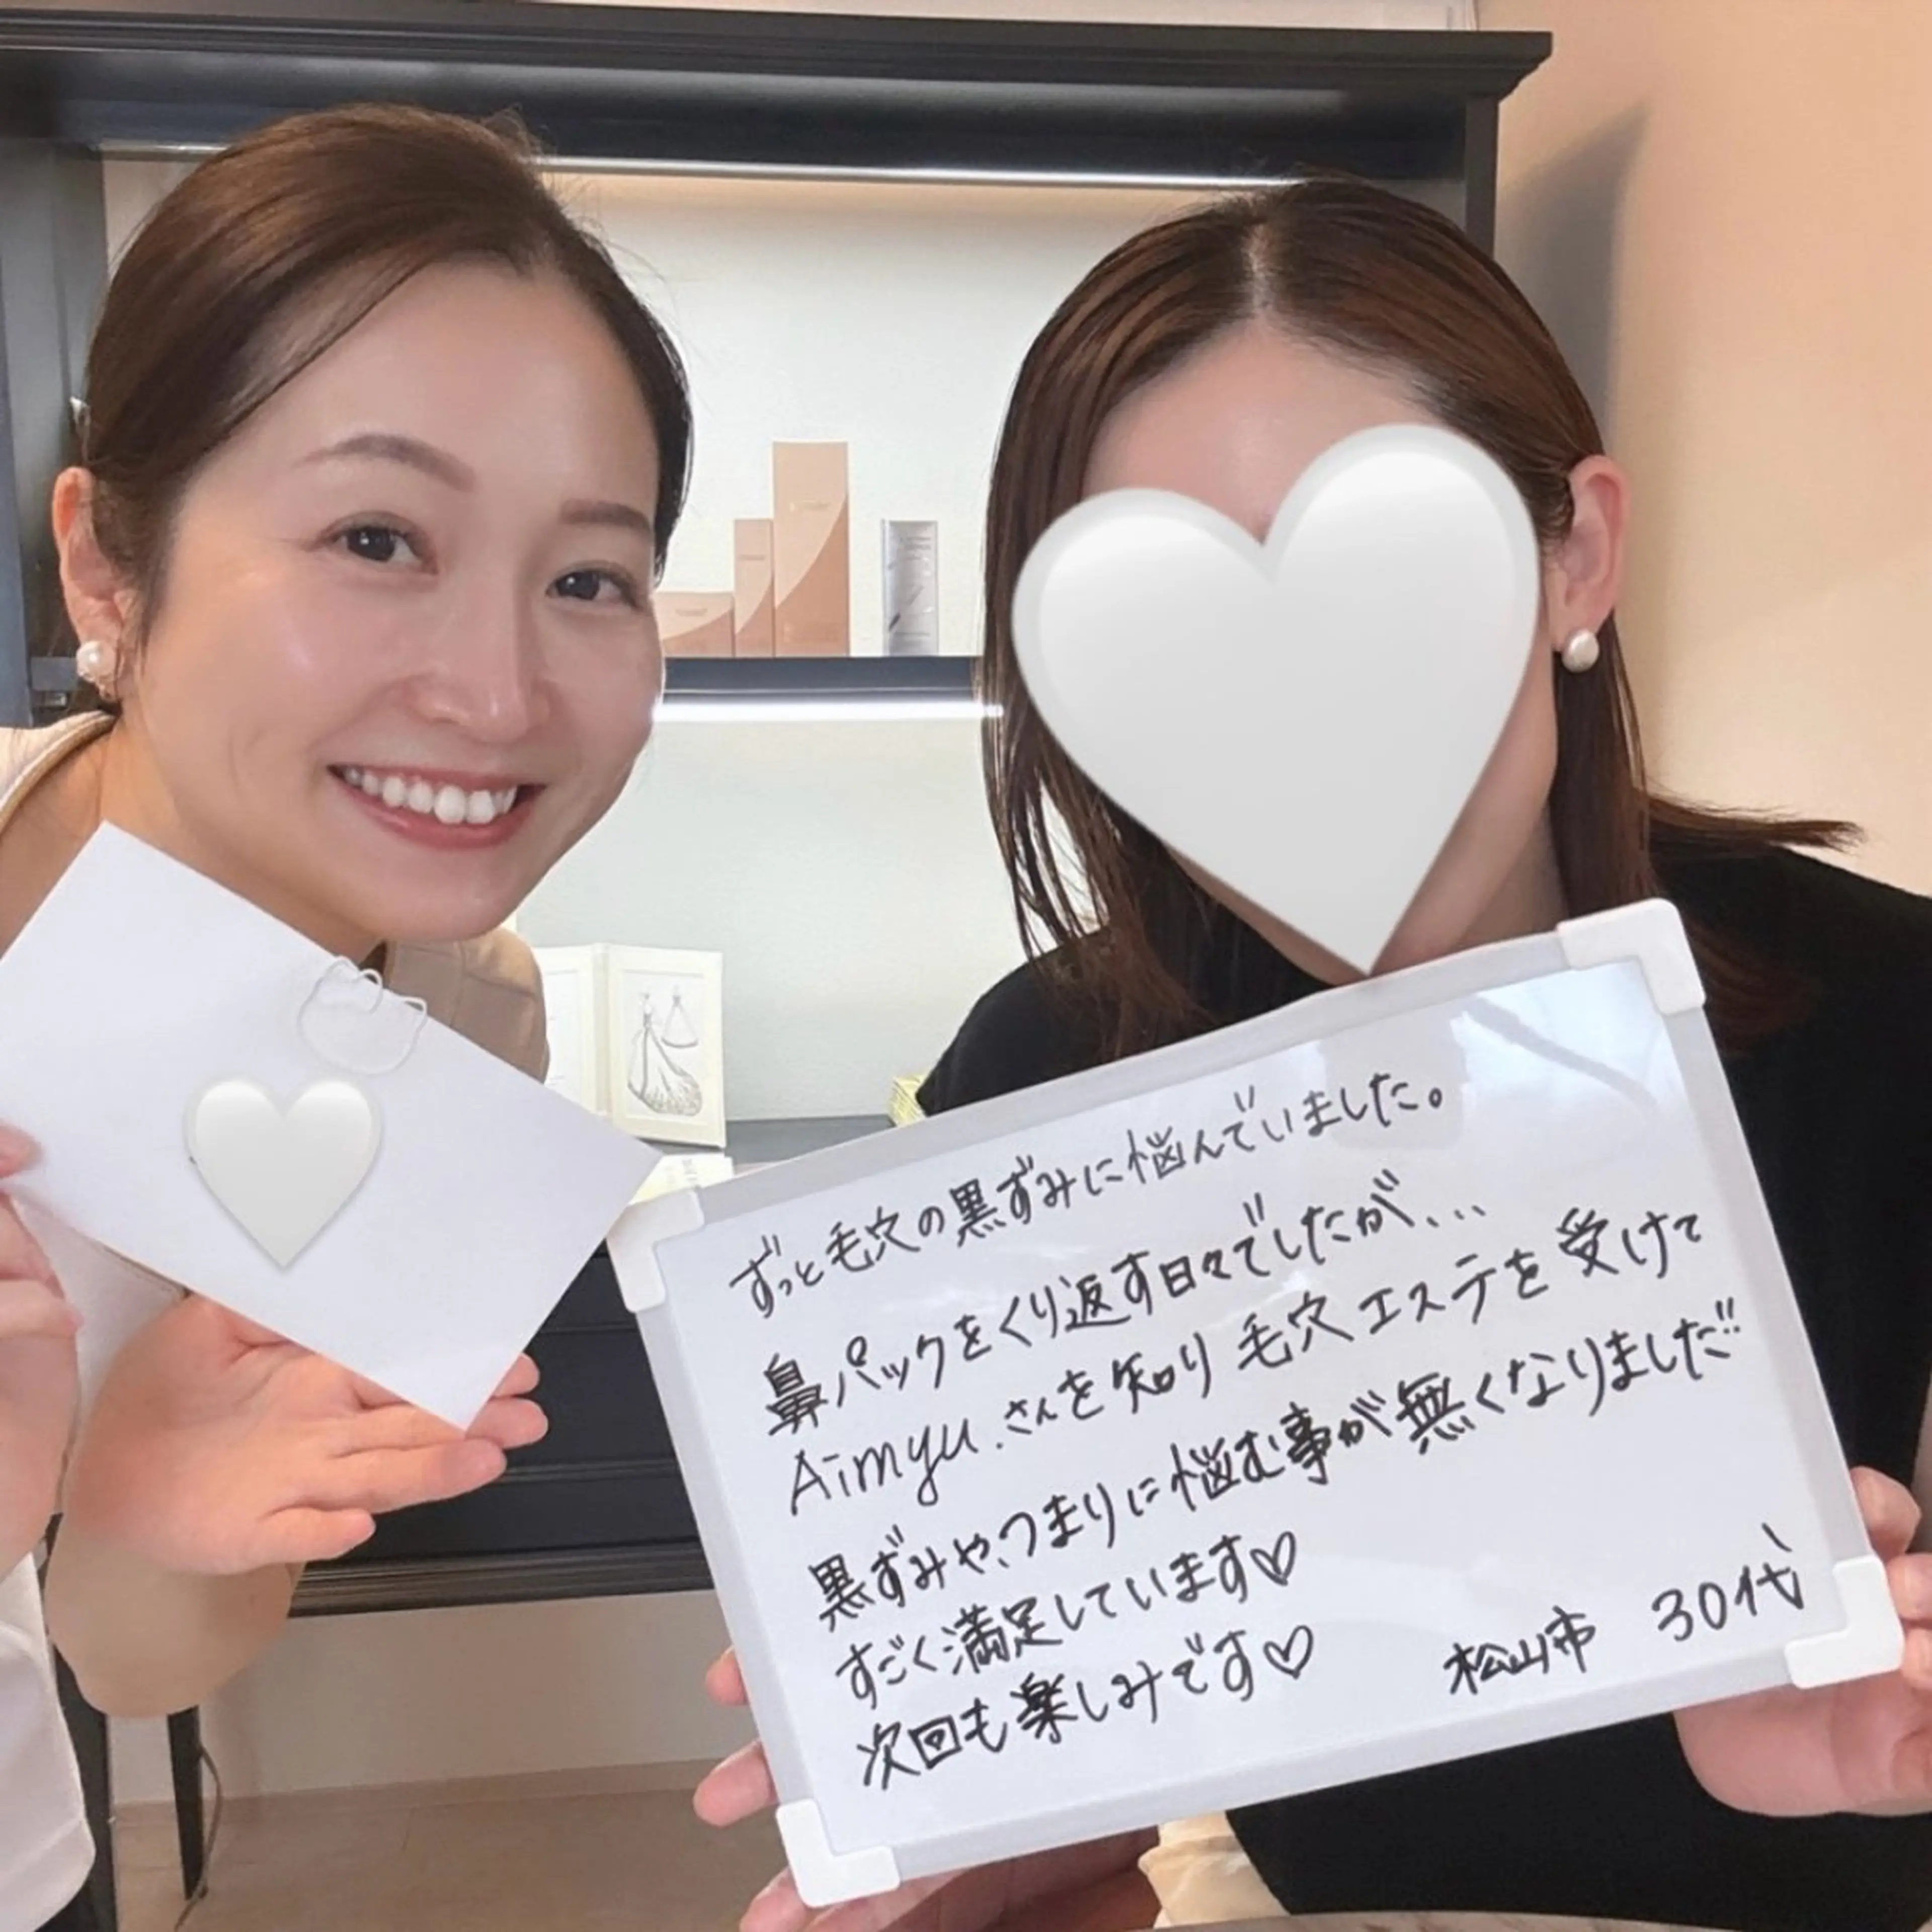 ずっと毛穴の黒ずみに悩んでいました。
鼻パックをくり返す日々でしたが、...
Aimyu.さんを知り 毛穴エステを受けて
黒ずみや、つまりに悩む事が無くなりました!!
すごく満足しています♡
次回も楽しみです♡
松山市 30代